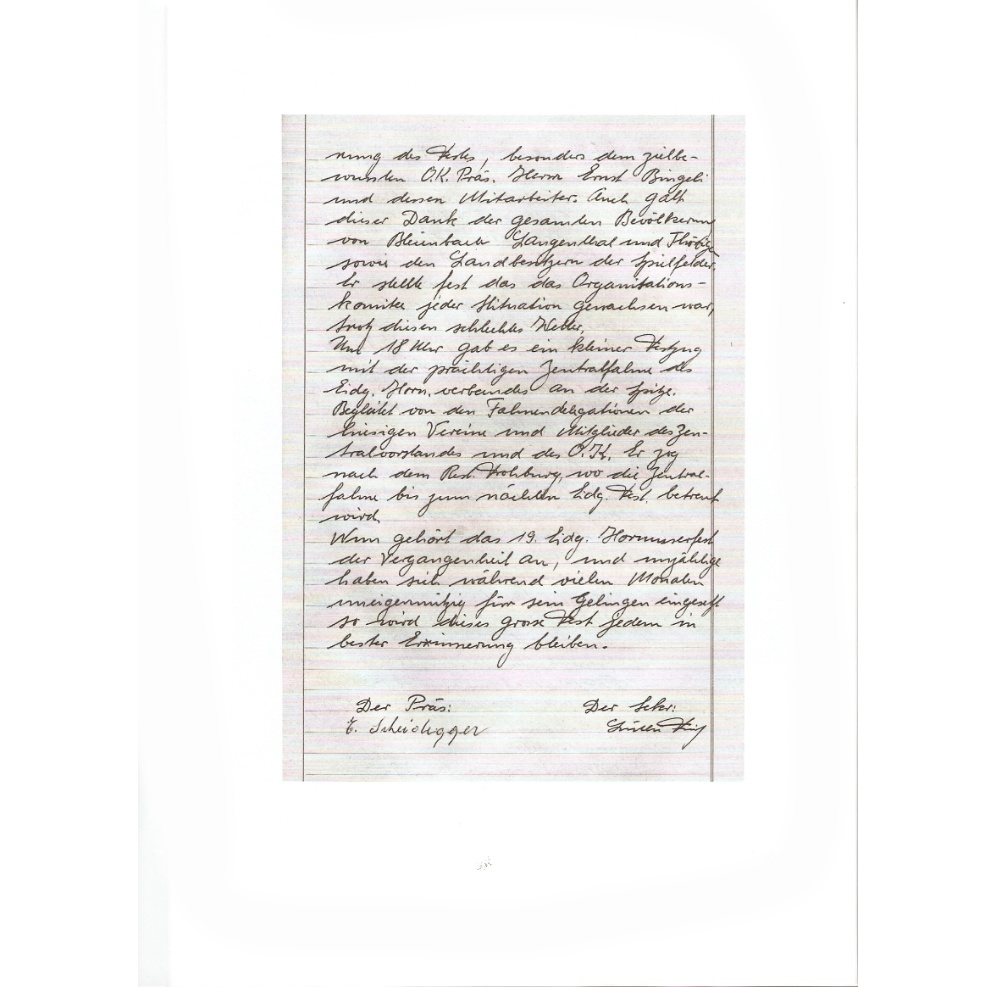 nung des Festes, besonders dem zielbe-
wussten O.K. Präs. Herrn Ernst Bingeli
und dessen Mitarbeiter. Auch galt
dieser Dank der gesamten Bevölkerung
von Bleienbach Langenthal und Thörigen
sowie den Landbesitzern der Spielfelder.
Er stellte fest das das Organisations-
komitee jeder Situation gewachsen war,
trotz diesen schlechtes Wetter,
Um 18 Uhr gab es ein kleiner Festzug
mit der prächtigen Zentralfahne des
Eidg. Horn. verbandes an der Spitze.
Begleitet von den Fahnendelegationen der
hiesigen Vereine und Mitglieder des Zen-
tralvorstandes und des O.K. Er zog
nach dem Rest. wo die Zentral-
fahne bis zum nächsten Eidg. Fest, betreut
wird.
Nun gehört das 19. Eidg. Hornusserfest
der Vergangenheit an, und unzählige
haben sich während vielen Monaten
uneigennützig für sein Gelingen eingesetzt
so wird dieses grosse Fest jedem in
bester Erinnerung bleiben.
Der Präs: Der Sekr:
E. Scheidegger